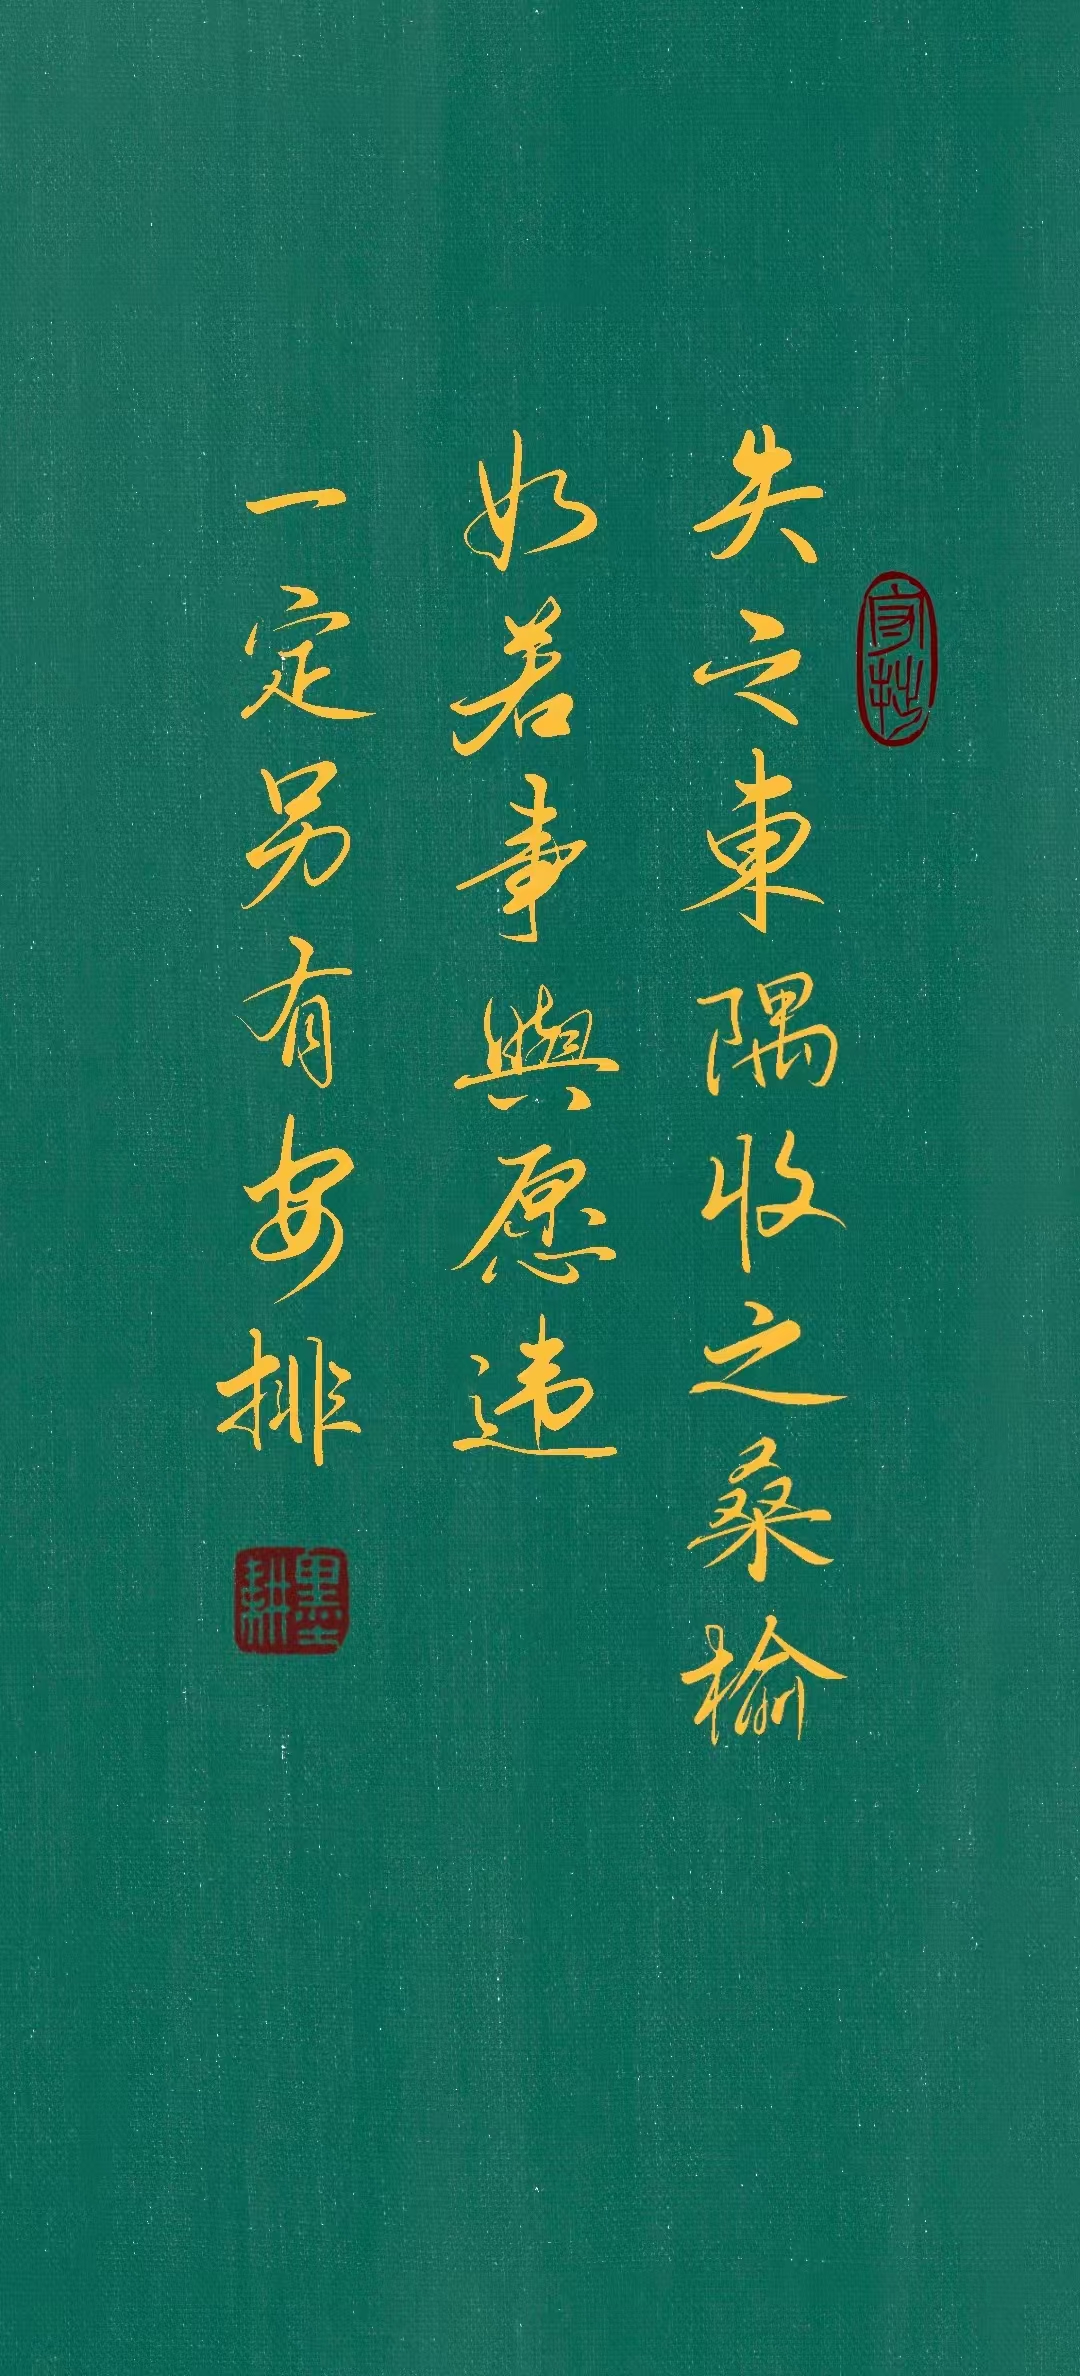 失之東隅收之桑榆
守拙
如若事與愿违
一定另有安排
墨耕